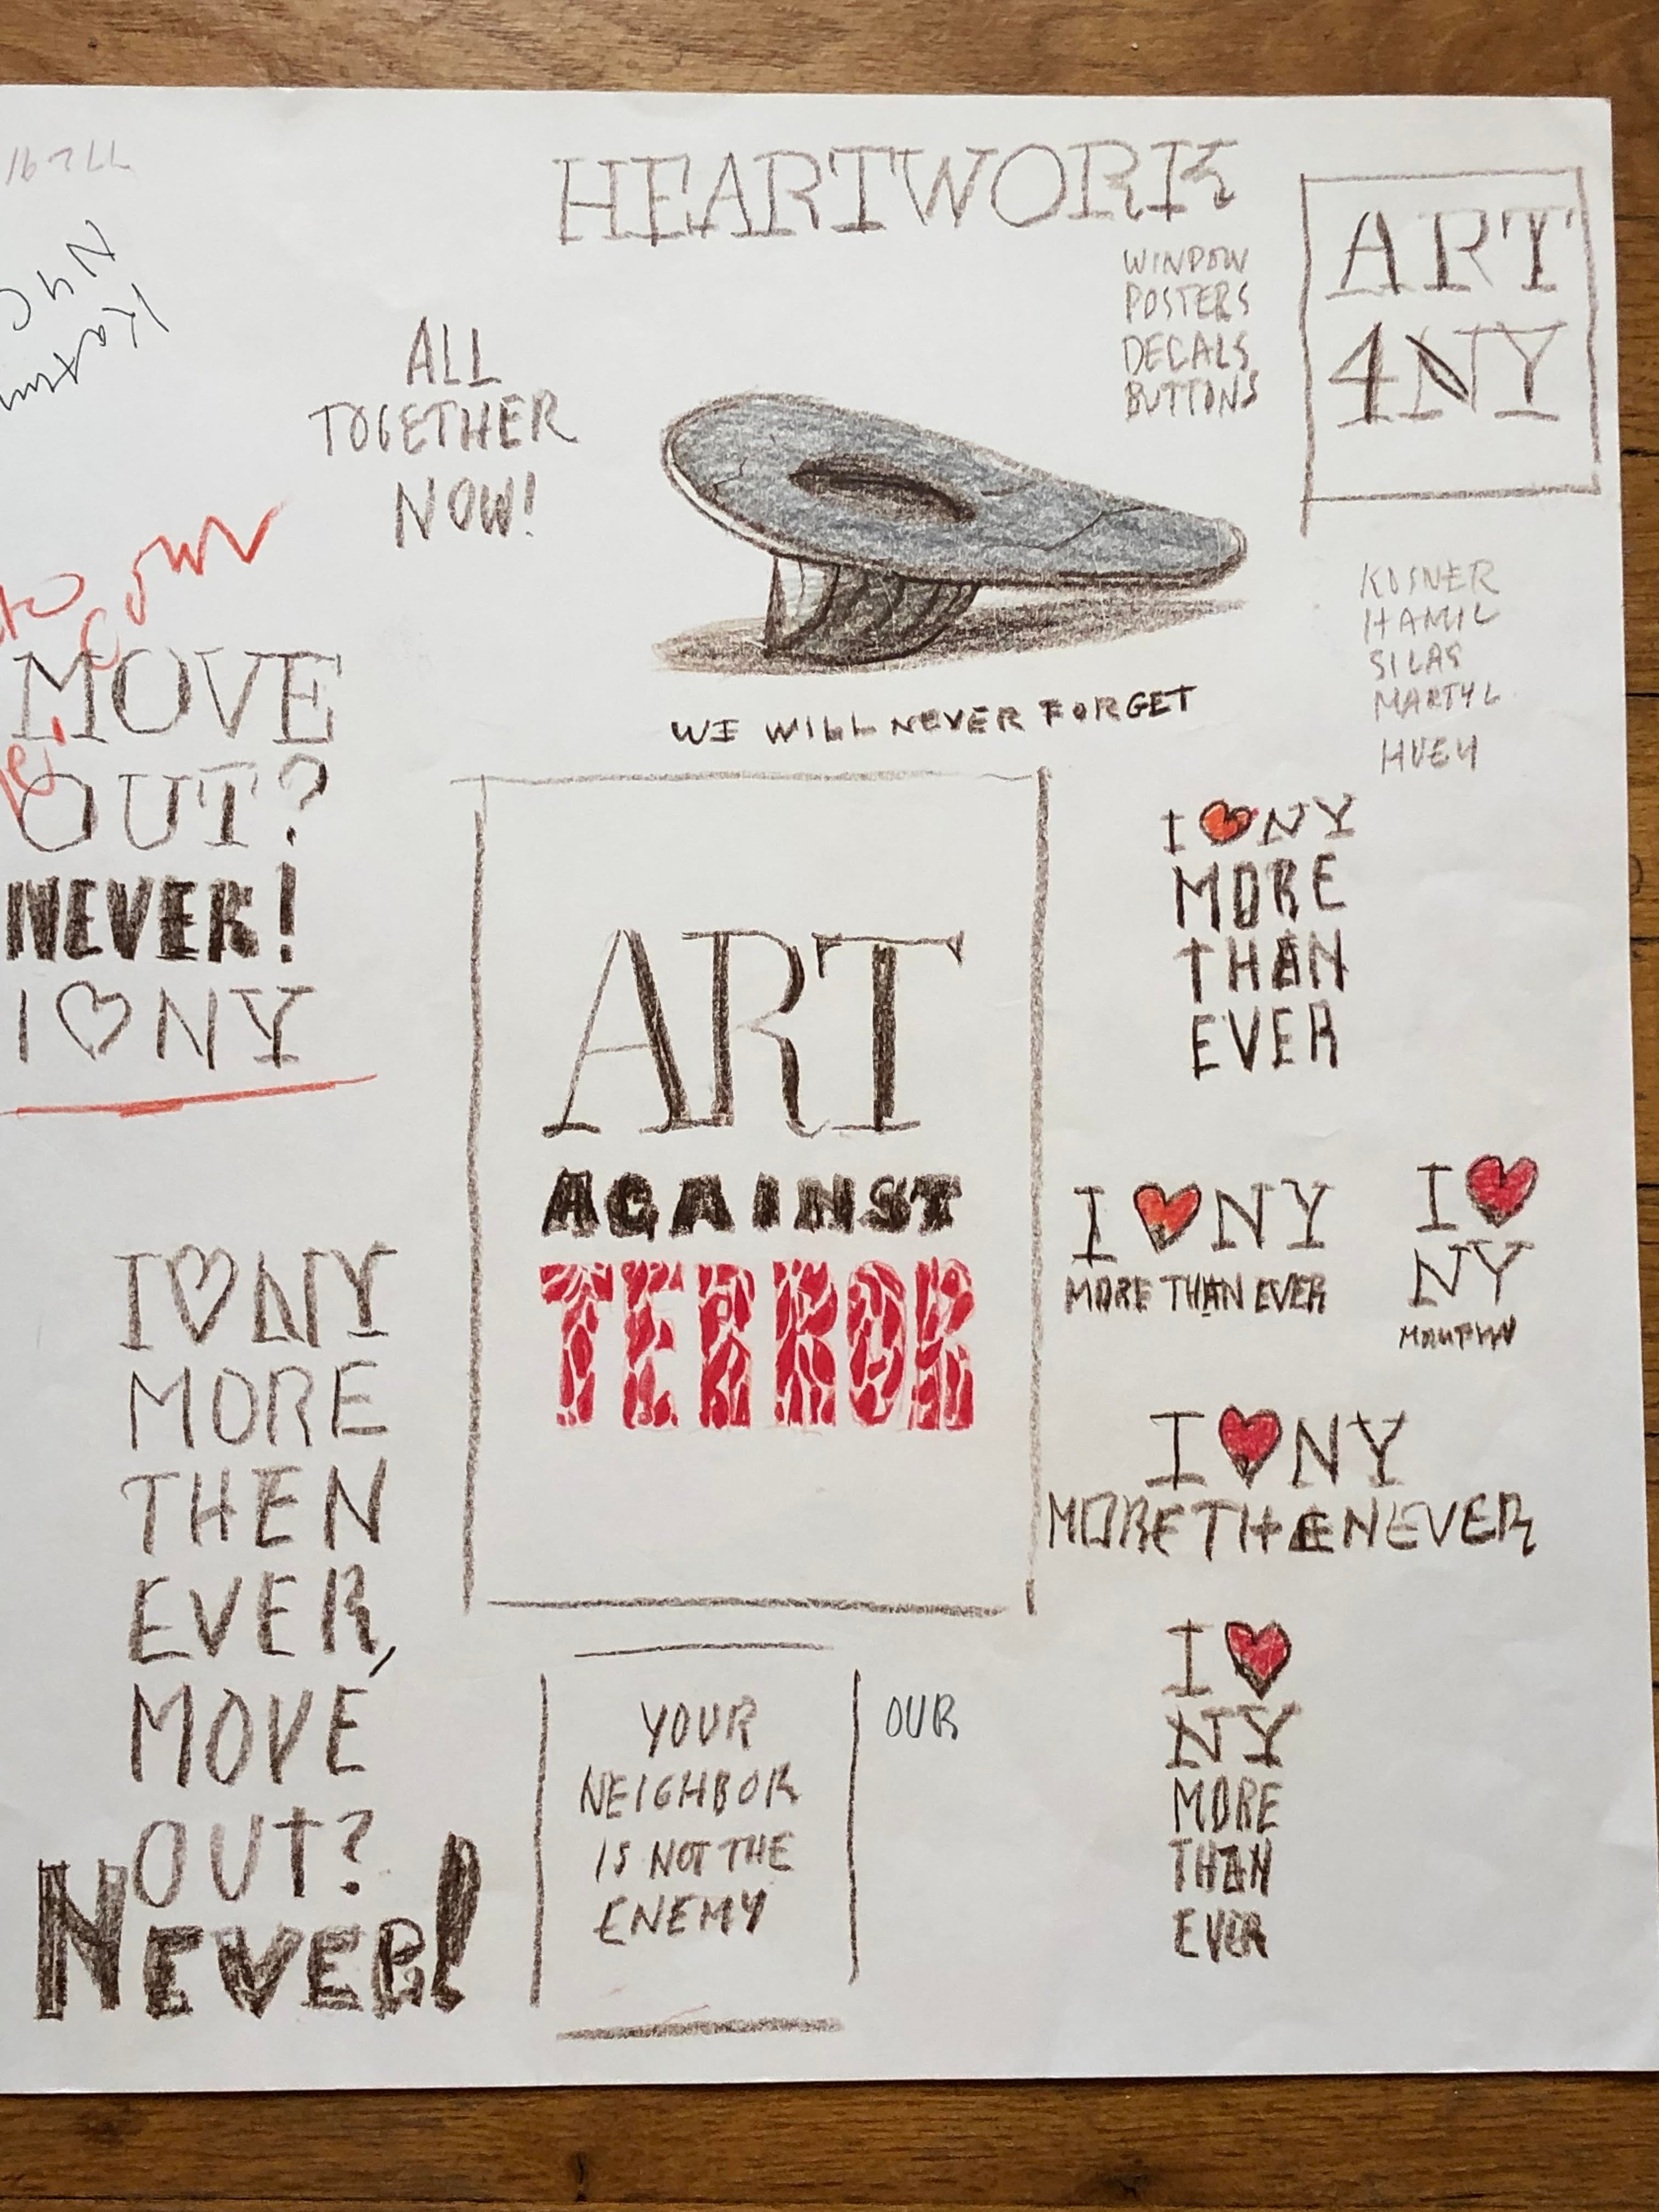 HEARTWORK
WINDOW
POSTERS
DECALS
BUTTONS
ART
4NY
NYC
ALL
TOGETHER
NOW!
WE WILL NEVER FORGET
KOSNER
HAMIL
SILAS
MARTYL
HUEY
MOVE
OUT?
NEVER!
I ♡ NY
ART
AGAINST
TERROR
I ♥ NY
MORE
THAN
EVER
I ♥ NY
MORE THAN EVER
I ♥
NY
I ♥ NY
MORE THEN EVER
I ♡ NY
MORE
THEN
EVER,
MOVE
OUT?
NEVER!
YOUR
NEIGHBOR
IS NOT THE
ENEMY
OUR
I ♥
NY
MORE
THAN
EVER